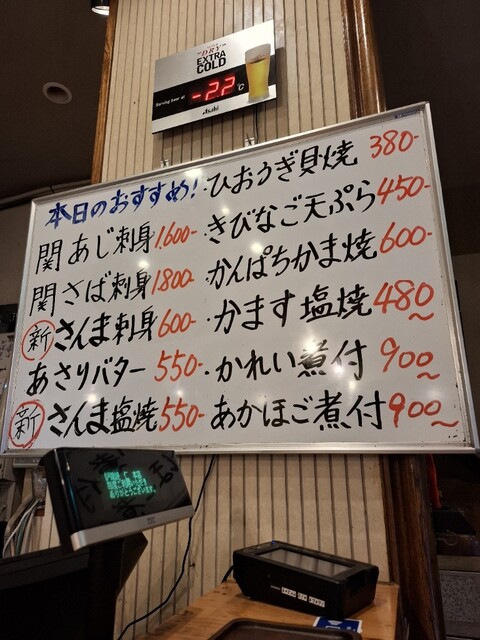 DRY
EXTRA
COLD
-2.2℃
Asahi
本日のおすすめ!
関あじ刺身 1,600-
関さば刺身 1800
新 さんま刺身 600-
あさりバター 550-
新 さんま塩焼 550-
・ひおうぎ貝焼 380-
・きびなご天ぷら 450-
・かんぱちかま焼 600-
・かます塩焼 480~
・かれい煮付 900~
あかほご煮付 900~
ありがとうございます。